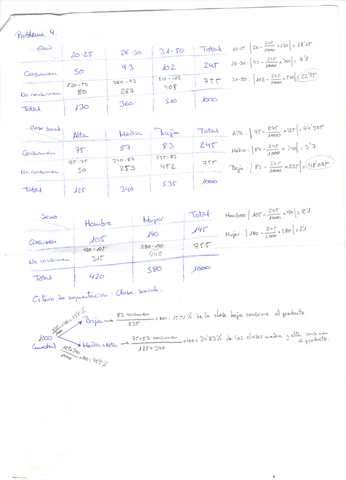 Problema 4.
Edad
20-25 26-30 31-50 Total
Consumen 50 93 102 245
No consumen 130-50 80 360-93 267 510-102 408 755
Total 130 360 510 1000
20-25: |50 - 245/1000 × 130| = 18'15
26-30: |93 - 245/1000 × 360| = 4'8
31-50: |102 - 245/1000 × 510| = 22'95
Clase Social Alta Media Baja Total
Consumen 75 87 83 245
No consumen 50 253 452 755
Total 125 340 535 1000
Alta: |75 - 245/1000 × 125| = 44'375
Media: |87 - 245/1000 × 340| = 3'7
Baja: |83 - 245/1000 × 535| = 48'075
Sexo
Hombre Mujer Total
Consumen 105 140 245
No consumen 315 440 755
Total 420 580 1000
Hombre: |105 - 245/1000 × 420| = 2'1
Mujer: |140 - 245/1000 × 580| = 2'1
Criterio de segmentación: Clase social.
1000 (muestra)
Baja → 83 consumen / 535 × 100 = 15'51% de la clase baja consume el producto.
Media + Alta → 75+87 consumen / 125+340 × 100 = 34'83% de las clases media y alta consumen el producto.